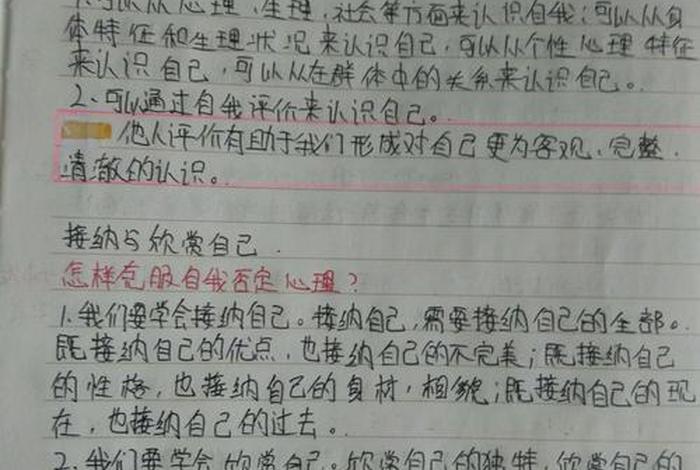 1.可以从心理、生理、社会等方面来认识自我;可以从身
体特征和生理状况来认识自己,可以从个性心理特征
来认识自己,可以从在群体中的关系来认识自己。
2、可以通过自我评价来认识自己。
他人评价有助于我们形成对自己更为客观、完整、
清澈的认识。
接纳与欣赏自己.
怎样克服自我否定心理?
1.我们要学会接纳自己。接纳自己,需要接纳自己的全部。
既接纳自己的优点,也接纳自己的不完美;既接纳自己
的性格,也接纳自己的身材,相貌;既接纳自己的现
在,也接纳自己的过去。
2、我们要学会欣赏自己。欣赏自己的独特,欣赏自己的